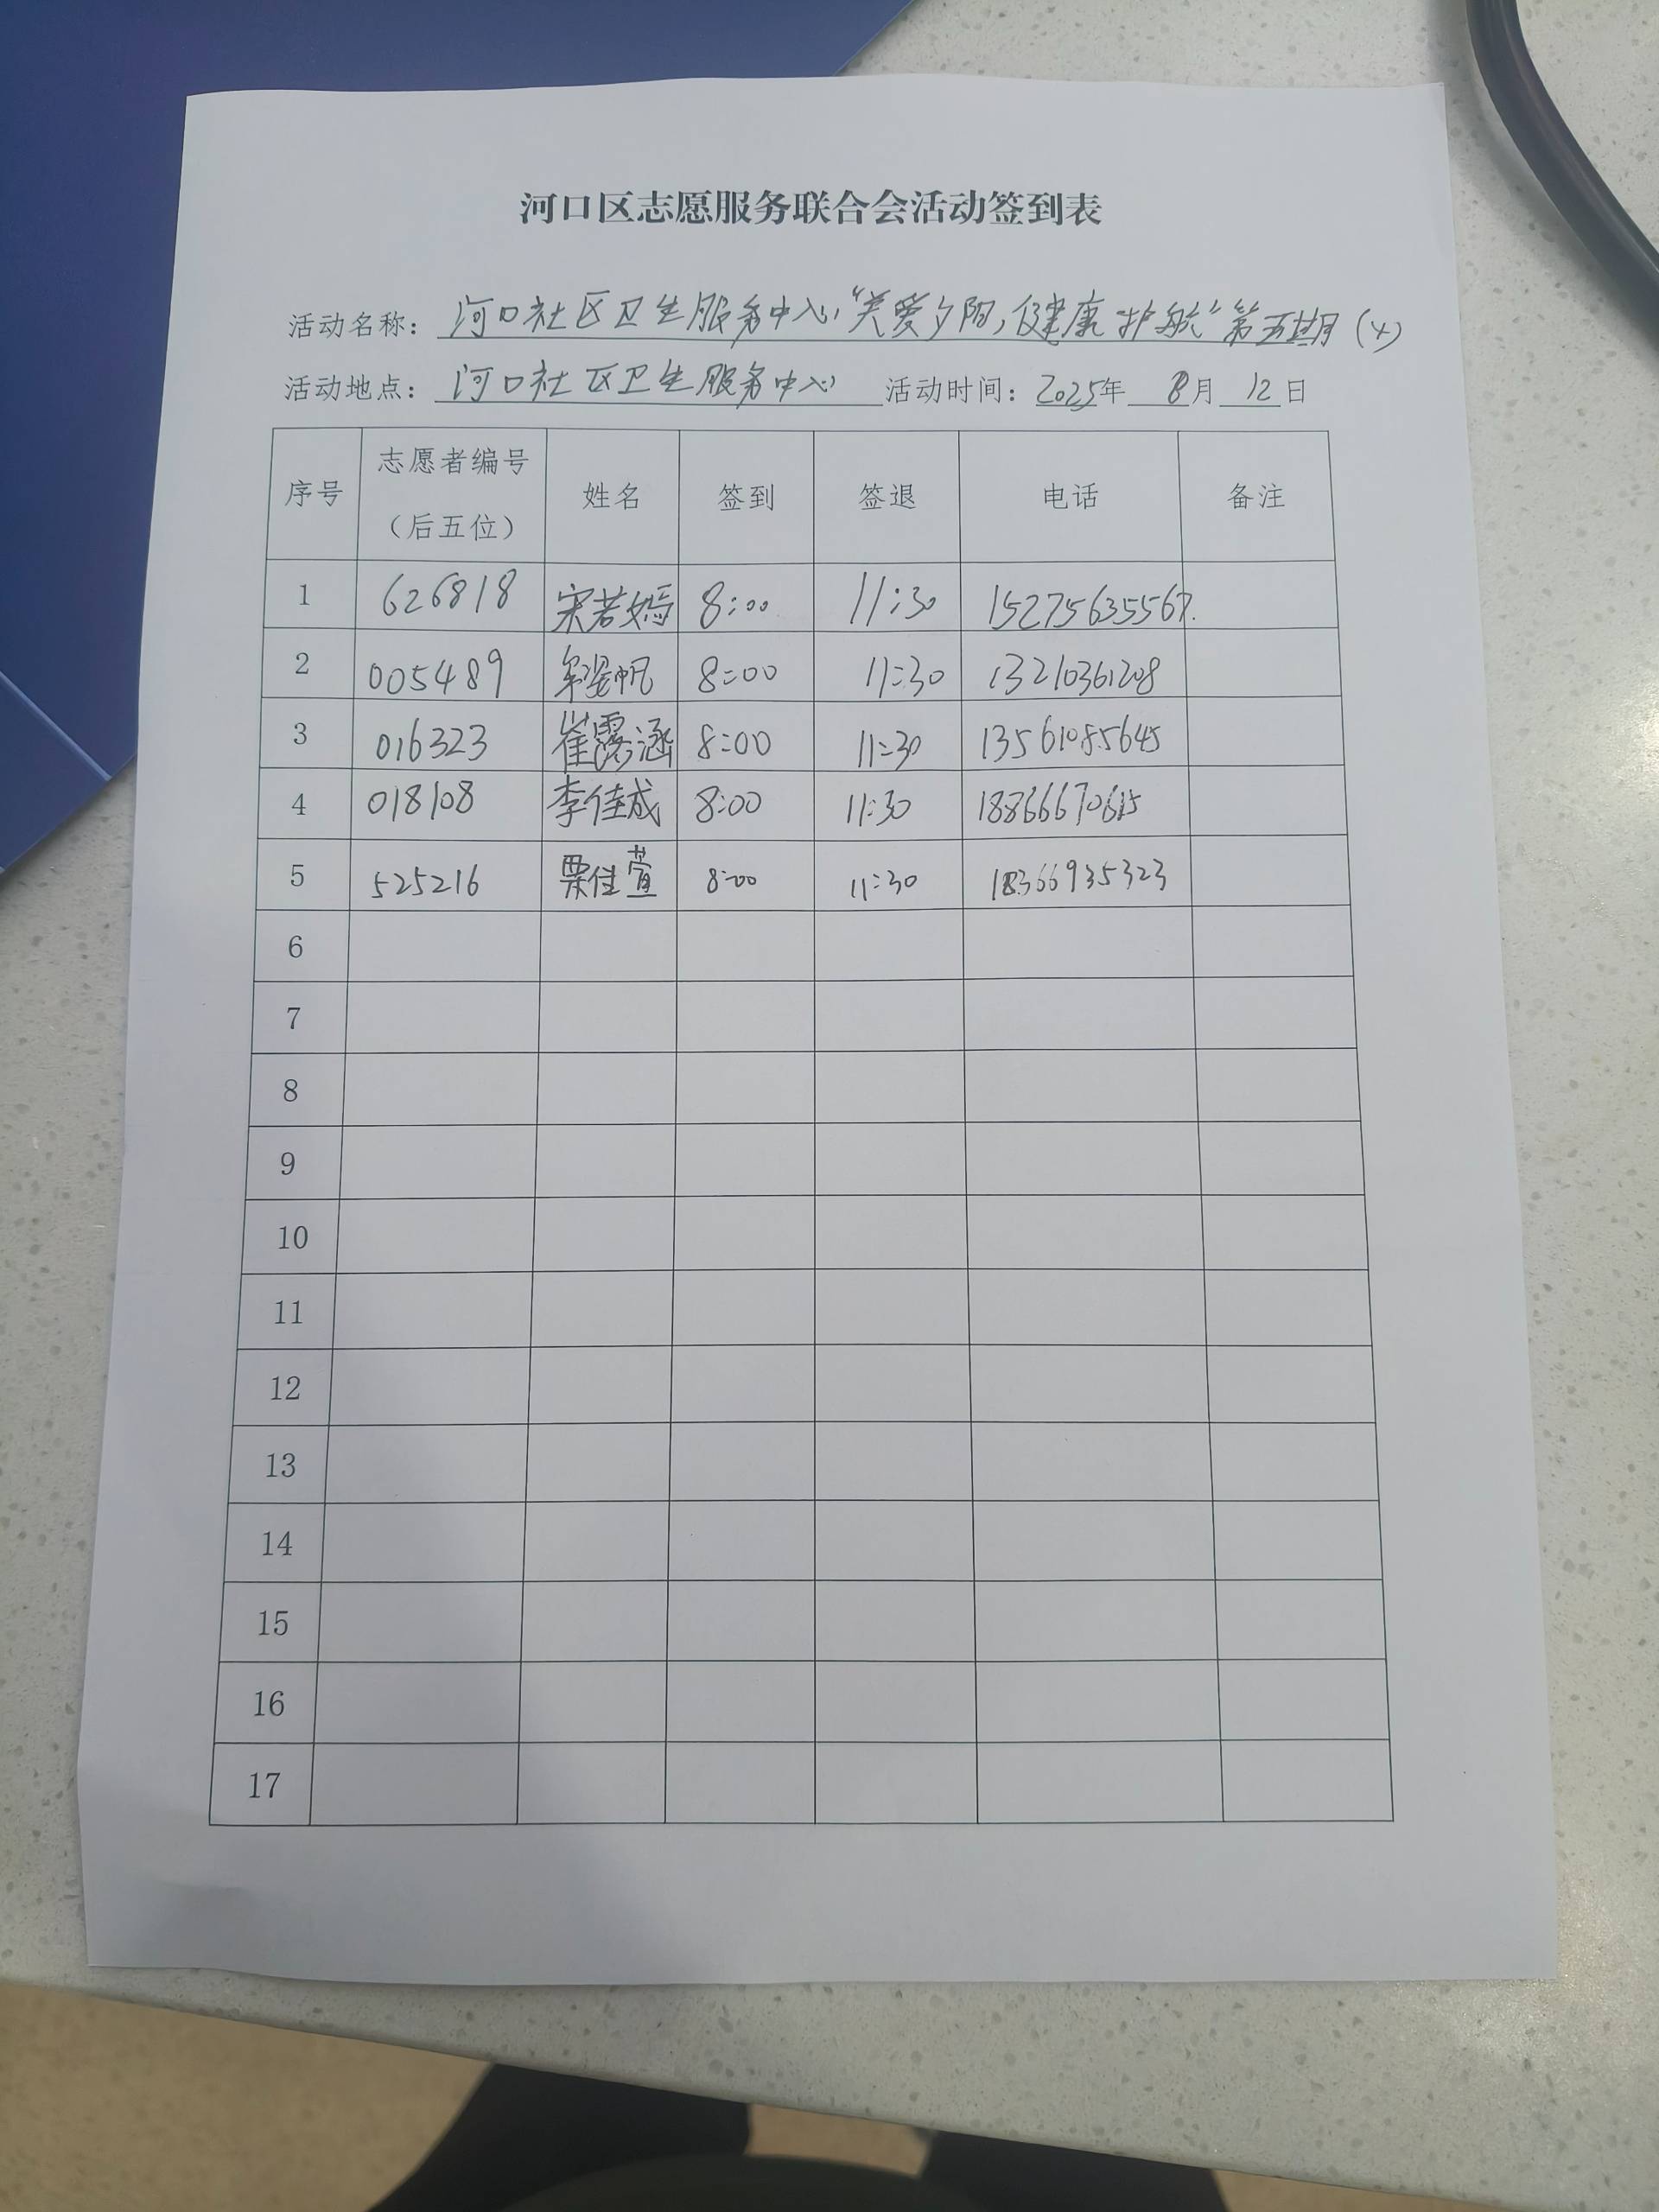 河口区志愿服务联合会活动签到表
活动名称：河口社区卫生服务中心“关爱夕阳，健康护航”第五期（4）
活动地点：河口社区卫生服务中心 活动时间：2025年 8月 12日
序号 志愿者编号（后五位） 姓名 签到 签退 电话 备注
1 626818 宋若嫣 8:00 11:30 15275635567
2 005489 8:00 11:30 13210361208
3 016323 崔露涵 8:00 11:30 13561085645
4 018108 李佳成 8:00 11:30
5 525216 栗佳萱 8:00 11:30 18366935323
6
7
8
9
10
11
12
13
14
15
16
17